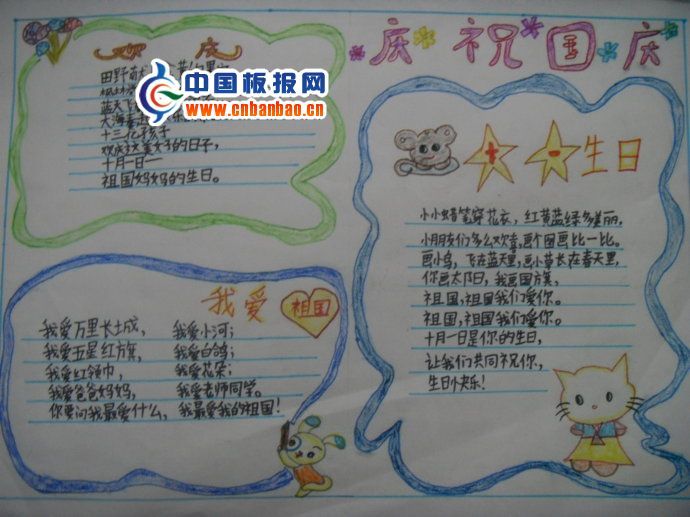 欢庆
田野
蓝天
大海
中国板报网
www.cnbanbao.cn
十三亿孩子
欢庆这美好的日子,
十月一日—
祖国妈妈的生日。
庆祝国庆
十一生日
小小蜡笔穿花衣,红黄蓝绿多美丽,
小朋友们多么欢喜,画个图画比一比。
画小鸟,飞在蓝天里,画小草长在春天里,
你画太阳,我画国旗,
祖国,祖国我们爱你。
祖国,祖国我们爱你。
十月一日是你的生日,
让我们共同祝你,
生日快乐!
我爱祖国
我爱万里长城, 我爱小河;
我爱五星红旗, 我爱白鸽;
我爱红领巾, 我爱花朵;
我爱爸爸妈妈, 我爱老师同学。
你要问我最爱什么, 我最爱我的祖国!